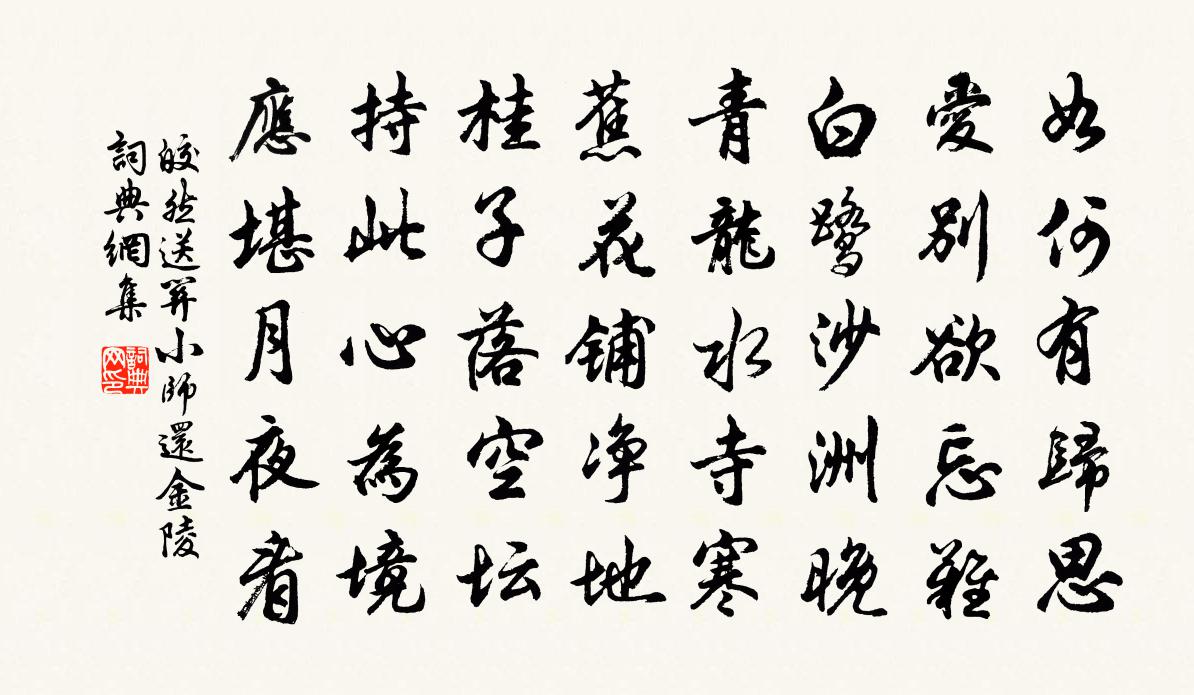 如何有歸思
愛別欲忘難
白鷺沙洲晚
青龍水寺寒
蕉花鋪净地
桂子落空坛
持此心為境
應堪月夜看
皎然送關小師還金陵
詞典網集
詞典网印